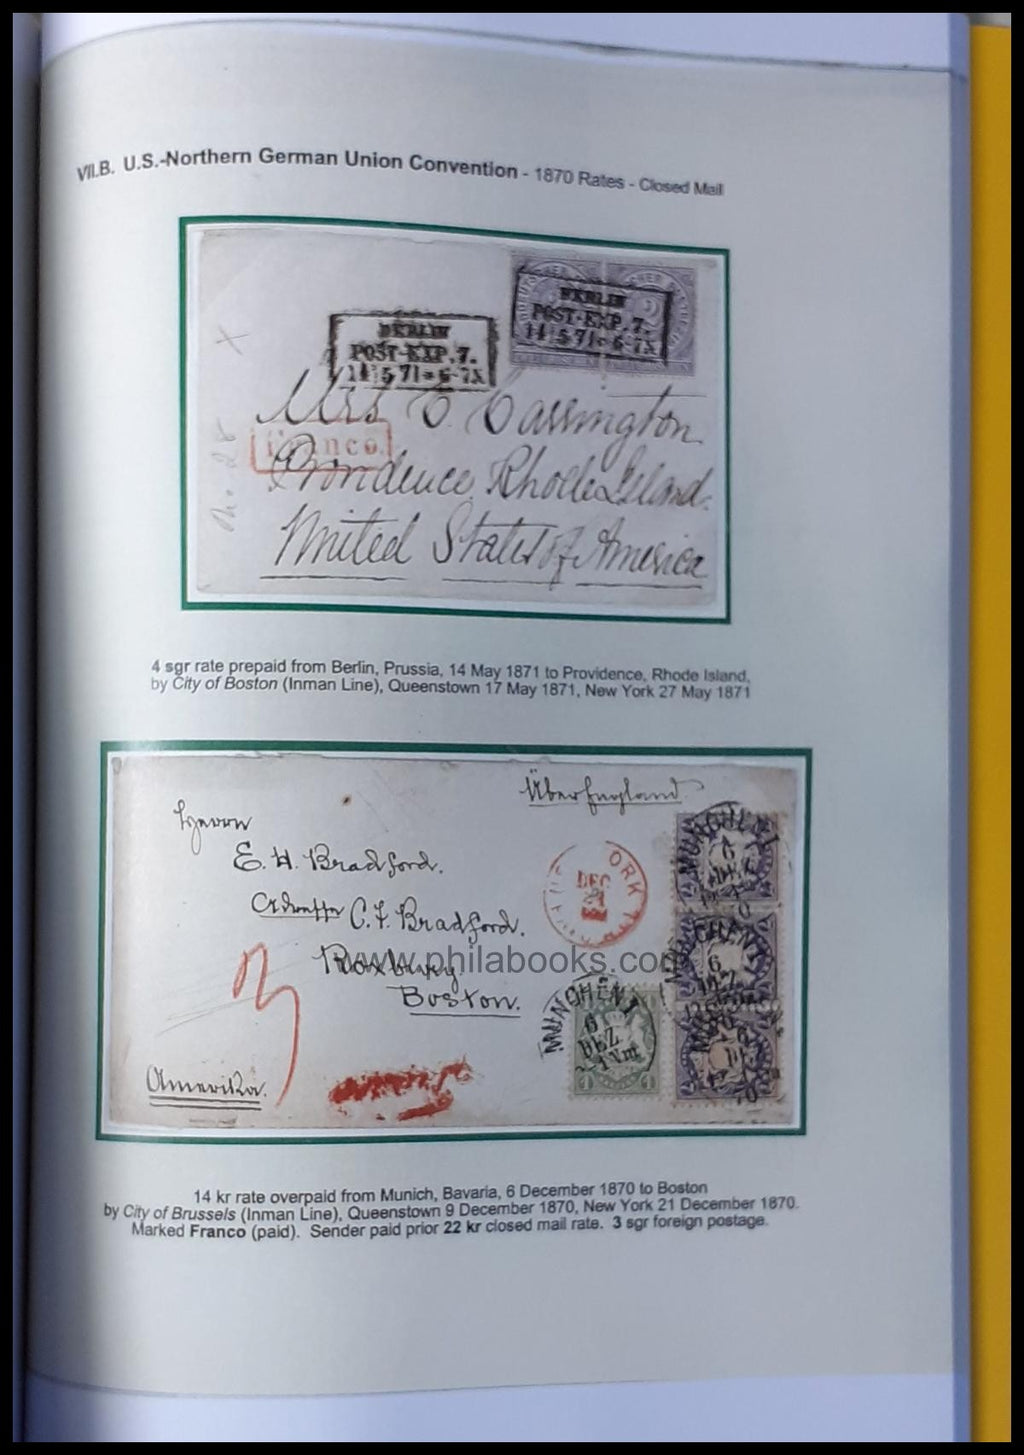 VII.B. U.S.-Northern German Union Convention - 1870 Rates - Closed Mail
BERLIN
POST-EXP. 7.
14 5 71 * 6-7X
BERLIN
POST-EXP. 7.
14 5 71 * 6-7X
Mrs C. Carrington
Franco.
No. 28
Providence, Rhode Island.
United States of America
4 sgr rate prepaid from Berlin, Prussia, 14 May 1871 to Providence, Rhode Island,
by City of Boston (Inman Line), Queenstown 17 May 1871, New York 27 May 1871
Über England.
Herrn
E. H. Bradford.
C. F. Bradford.
Roxbury
Boston.
Amerika.
ORK
DEC
21
MÜNCHEN I
6
DEZ
MÜNCHEN I
6
DEZ
MÜNCHEN I
6
DEZ
1 Nm
1
1
3
www.philabooks.com
14 kr rate overpaid from Munich, Bavaria, 6 December 1870 to Boston
by City of Brussels (Inman Line), Queenstown 9 December 1870, New York 21 December 1870.
Marked Franco (paid). Sender paid prior 22 kr closed mail rate. 3 sgr foreign postage.